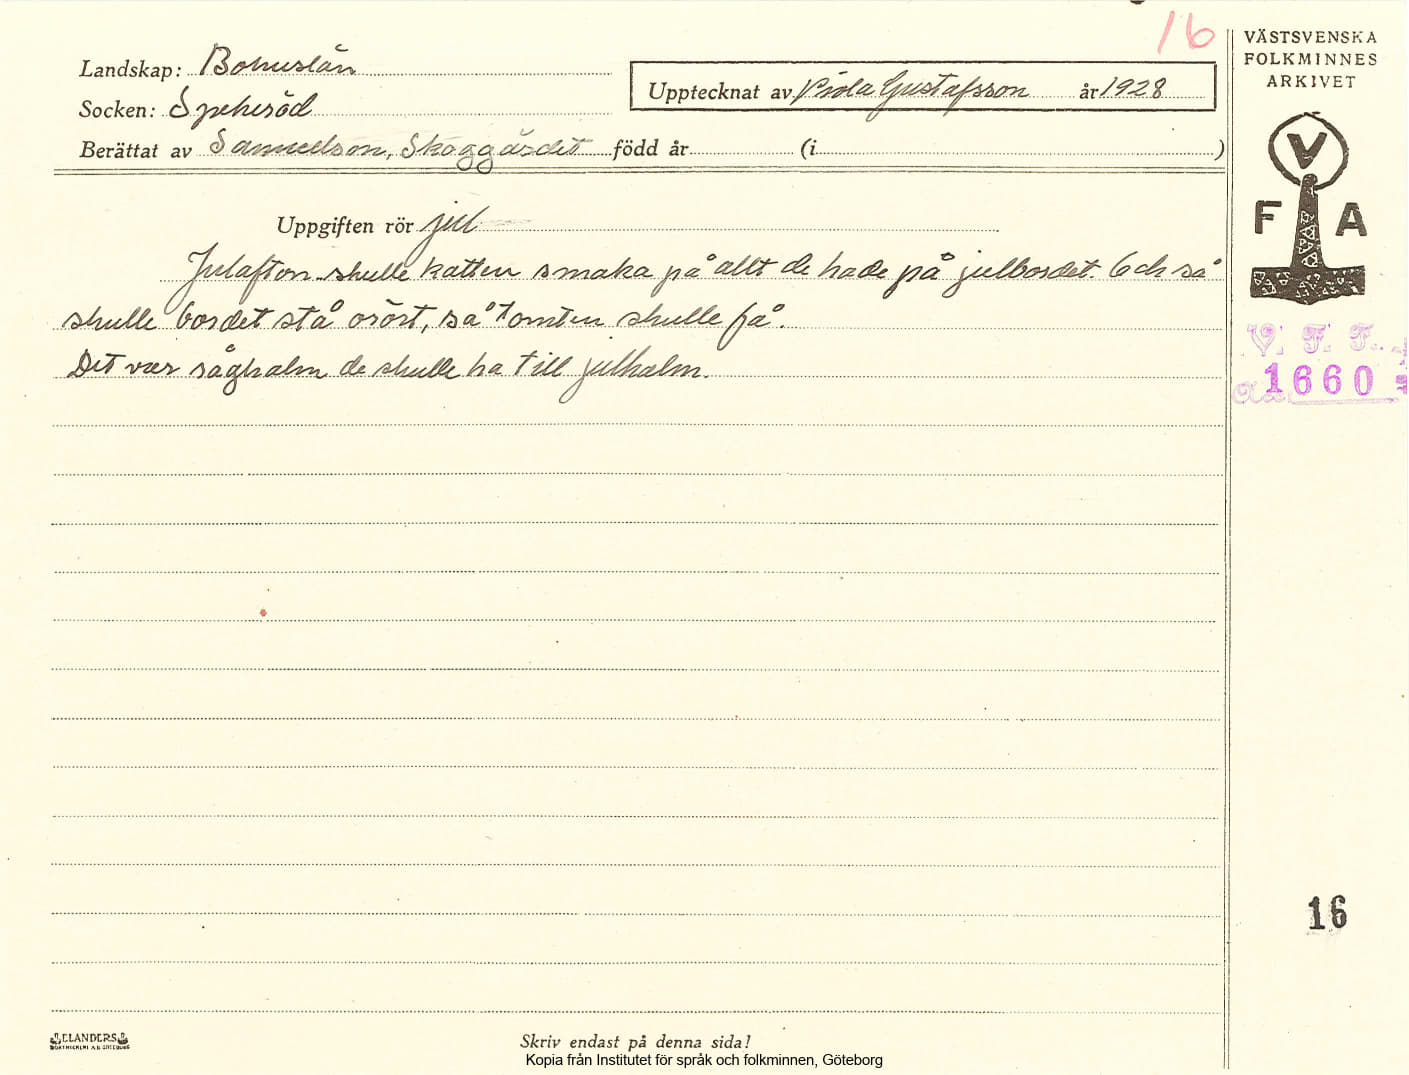 16
Landskap: Bohuslän
Socken: Spekeröd
Upptecknat av Viola Gustafsson år 1928
Berättat av Samuelson, Skoggärdet född år (i )
VÄSTSVENSKA
FOLKMINNES
ARKIVET
V
F A
V. F. F.
1660
Uppgiften rör jul
Julafton skulle katten smaka på allt de hade på julbordet. Och så
skulle bordet stå orört, så tomten skulle få.
Det var råghalm de skulle ha till julhalm.
16
ELANDERS
Skriv endast på denna sida!
Kopia från Institutet för språk och folkminnen, Göteborg